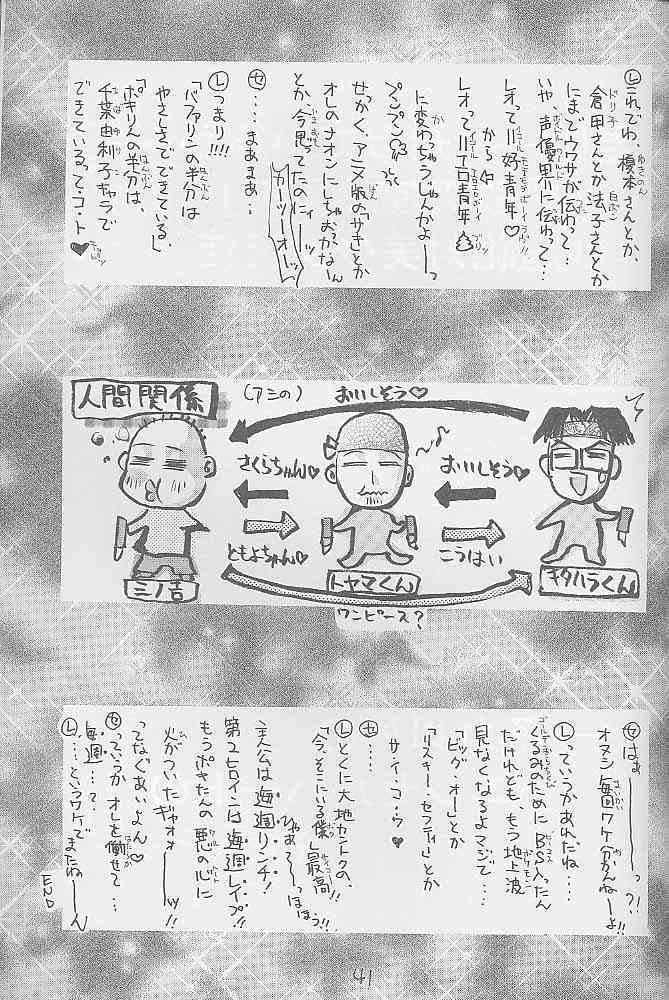 Ⓛこれでわ、榎本さんとか、
倉田さんとか法子さんとか
にまでウワサが伝わって…
いや、声優界に伝わって…
レオって＝好青年♡
から⇩
レオって＝エロ青年
に変わっちゃうじんかよーーっ
プンプン
せっかく、アニメ版の「サキ」とか
オレのナオンにしちゃおっかなーん
とか今思ってたのにィーーッ
カーツーオーッ
㋝…まあまあ…
Ⓛつまり!!!
「バファリンの半分は
やさしさでできている」
「ポキりんの半分は、
千葉由利子キャラで
できているって・コ・ト♥
人間関係
（アシの）
おいしそう♡
さくらちゃん♡
おいしそう♡
ともよちゃん♡
こうはい
ミノ吉
トヤマくん
キタハラくん
ワンピース？
㋝はぁーーっ？!
オメシ毎回ワケ分かんねーよ!!
Ⓛっていうかあれだね…
くるみのためにBS入ったん
だけれども、もう地上波
見なくなるよマジで…
「ビッグ・オー」とか
「リスキー・セフティ」とか
サ・イ・コ・ウ♥
㋝……
Ⓛとくに大地セントクの、
「今、そこにいる僕」最高!!
ひゃあて〜っほほう!!
主人公は毎週リンチ！
第2ヒロインは毎週レイプ!!
もうポキたんの悪の心に
火がついたギャオォーーッ!!
ってなぐあいよん♡
㋝っていうかオレを働せて…
毎週…？
Ⓛ…というワケでまたねーーん
END
41